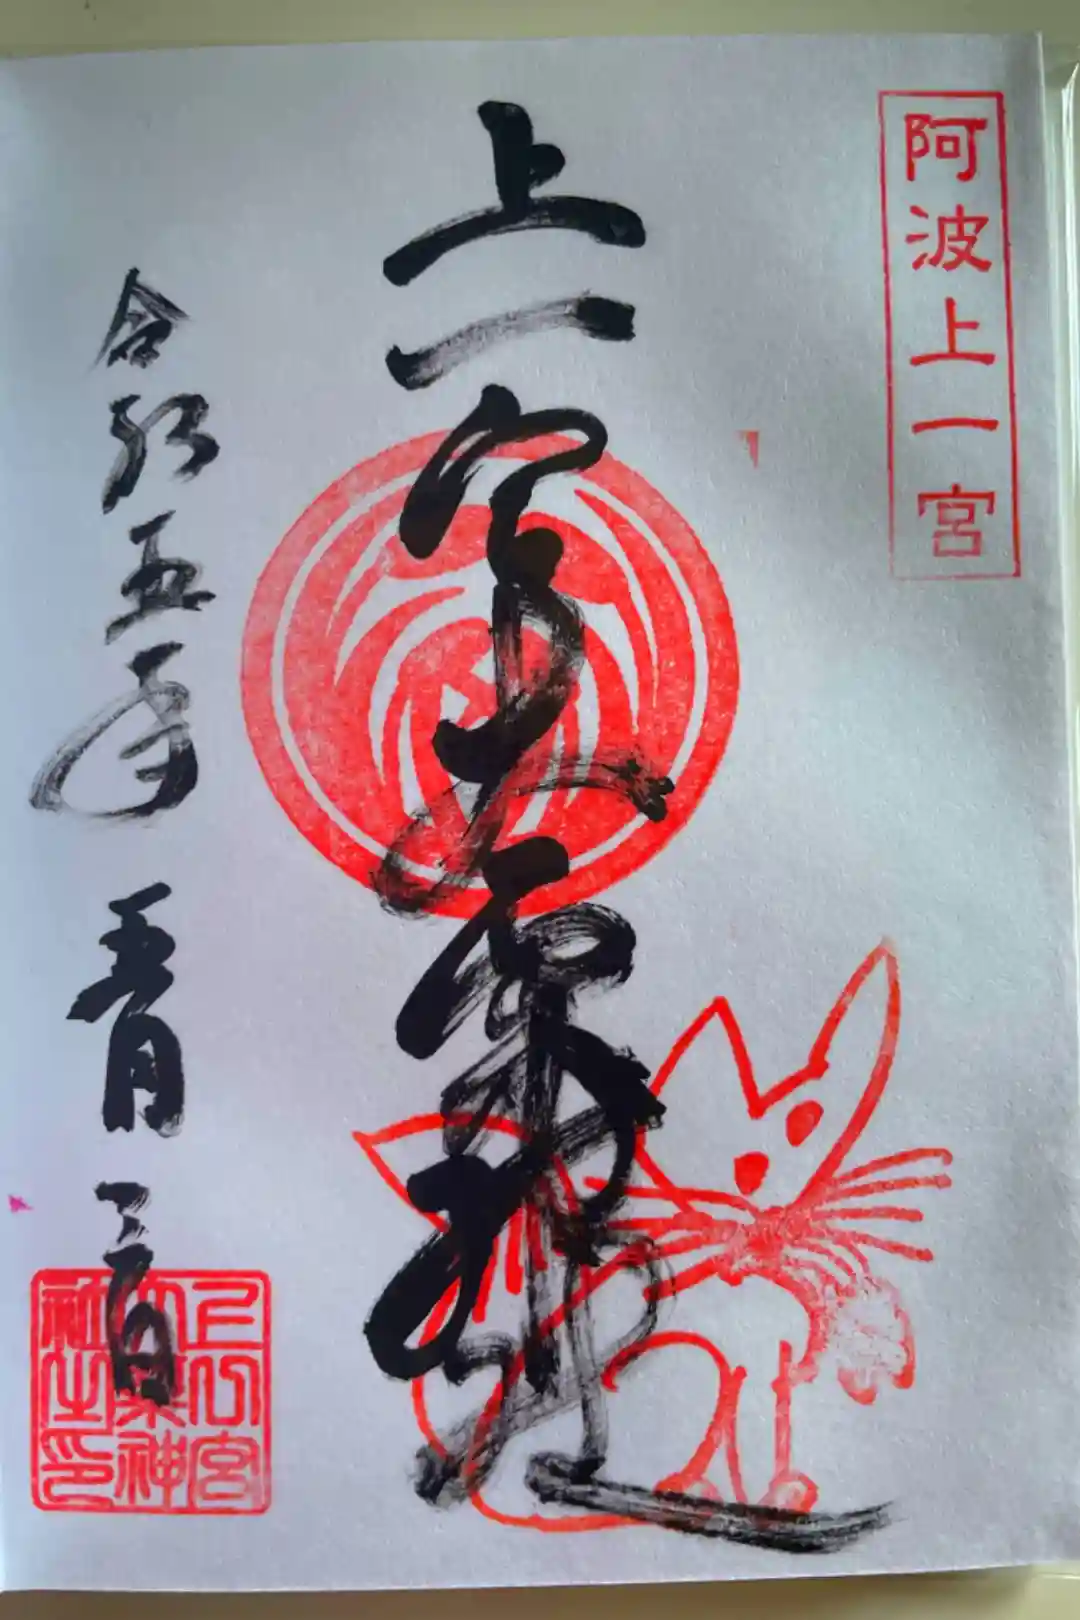 阿波上一宮
上一宮大粟神社
令和五年 五月 三日
上一宮
大粟神
社之印